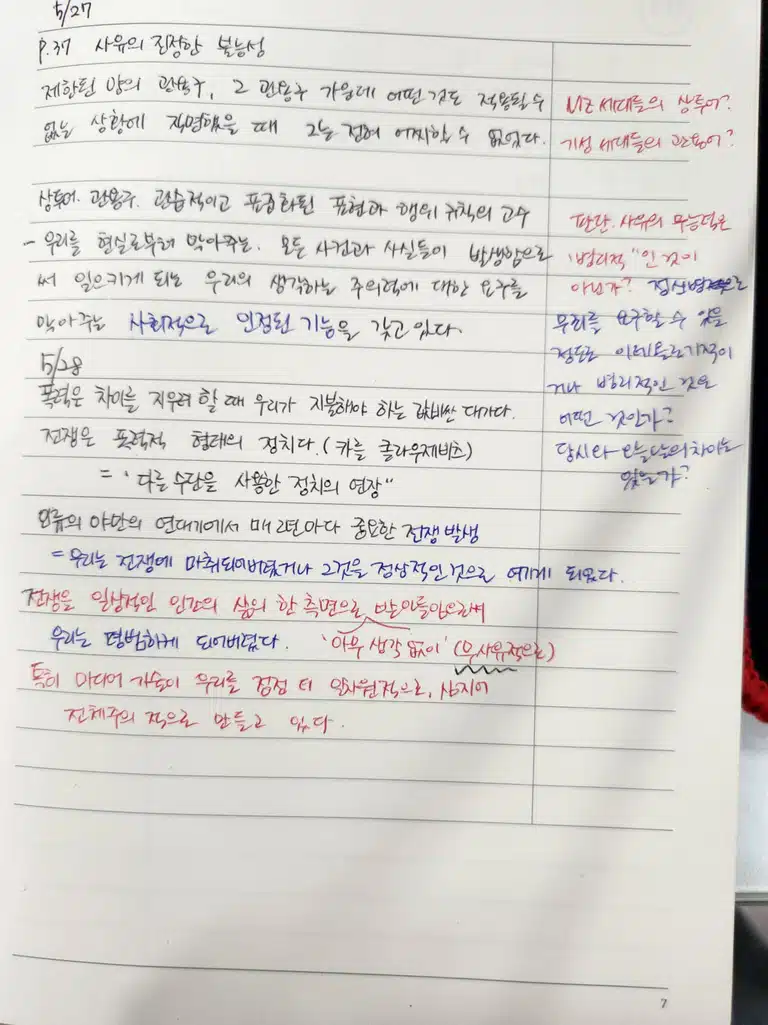 5/27
P.37 사유의 진정한 불능성
제한된 양의 관용구, 그 관용구 가운데 어떤 것도 적용될 수
없는 상황에 직면했을 때 그는 전혀 어찌할 수 없었다.
MZ세대들의 상투어?
기성세대들의 관용어?
상투어. 관용구. 관습적이고 표준화된 표현과 행위 규칙의 고수
- 우리를 현실로부터 막아주는. 모든 사건과 사실들이 발생함으로
써 일으키게 되는 우리의 생각하는 주의력에 대한 요구를
막아주는 사회적으로 인정된 기능을 갖고 있다.
판단. 사유의 무능력은
'병리적"인 것이
아닌가? 정신병적으로
무죄를 요구할 수 있을
정도로 이데올로기적이
거나 병리적인 것은
어떤 것인가?
당시와 오늘날의 차이는
있는가?
5/28
폭력은 차이를 지우려 할 때 우리가 지불해야 하는 값비싼 대가다.
전쟁은 폭력적 형태의 정치다. (카를 클라우제비츠)
= '다른 수단을 사용한 정치의 연장"
인류의 야만의 연대기에서 매 2년마다 중요한 전쟁 발생
= 우리는 전쟁에 마취되어버렸거나 그것을 정상적인 것으로 여기게 되었다.
전쟁을 일상적인 인간의 삶의 한 측면으로 받아들임으로써
우리는 평범하게 되어버렸다. '아무 생각 없이' (무사유적으로)
특히 미디어 기술이 우리를 점점 더 일차원적으로, 심지어
전체주의 적으로 만들고 있다.
7